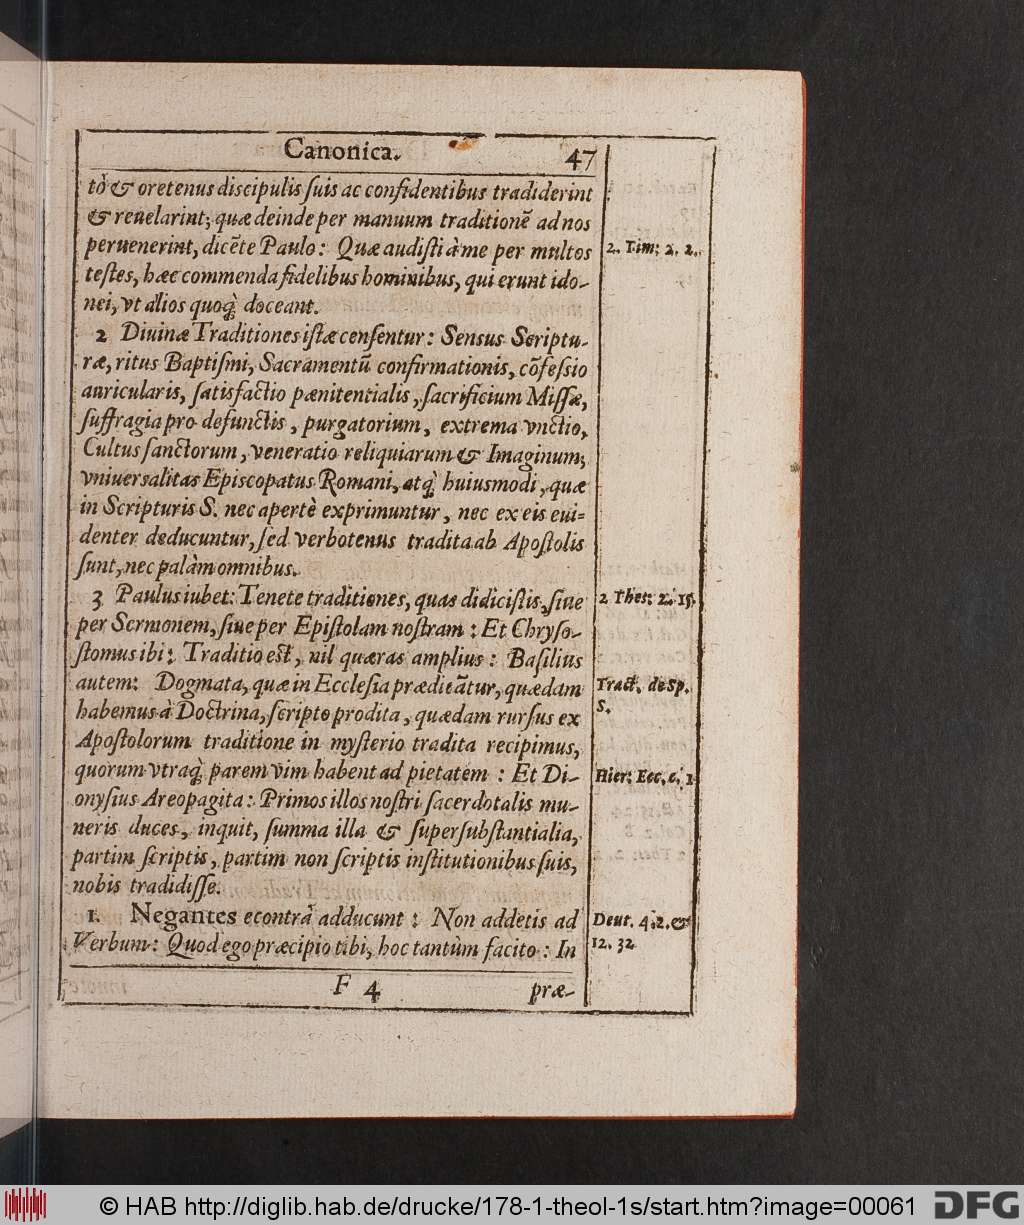 Canonica. 47
tò & oretenus discipulis ſuis ac confidentibus tradiderint
& reuelarint; quæ deinde per manuum traditionẽ ad nos
peruenerint, dicẽte Paulo: Quæ audiſti à me per multos
2. Tim: 2. 2.
teſtes, hæc commenda fidelibus hominibus, qui erunt ido-
nei, vt alios quoq́; doceant.
2 Diuinæ Traditiones iſtæ cenſentur: Sensus Scriptu-
ræ, ritus Baptiſmi, Sacramentũ confirmationis, cõfeſsio
auricularis, ſatisfactio pænitentialis, ſacrificium Miſſæ,
ſuffragia pro defunctis, purgatorium, extrema vnctio,
Cultus ſanctorum, veneratio reliquiarum & Imaginum;
vniuersalitas Episcopatus Romani, atq́; huiusmodi, quæ
in Scripturis S. nec apertè exprimuntur, nec ex eis eui=
denter deducuntur, ſed verbotenus tradita ab Apoſtolis
ſunt, nec palàm omnibus.
3 Paulus iubet: Tenete traditiones, quas didiciſtis, ſiue
2 Thes: 2. 15.
per Sermonem, ſiue per Epiſtolam noſtram: Et Chryſo-
ſtomus ibi: Traditio eſt, nil quæras amplius: Baſilius
autem: Dogmata, quæ in Eccleſia prædicãtur, quædam
Tract. de Sp.
S.
habemus à Doctrina, ſcripto prodita, quædam rurſus ex
Apoſtolorum traditione in myſterio tradita recipimus,
quorum vtraq́; parem vim habent ad pietatem: Et Di-
Hier: Ecc. c. 1
onyſius Areopagita: Primos illos noſtri ſacerdotalis mu-
neris duces, inquit, ſumma illa & ſuperſubſtantialia,
partim ſcriptis, partim non ſcriptis inſtitutionibus ſuis,
nobis tradidiſſe.
1. Negantes econtrà adducunt: Non addetis ad
Deut. 4. 2. &
Verbum: Quod ego præcipio tibi, hoc tantùm facito: In
12. 32
F 4 præ-
© HAB http://diglib.hab.de/drucke/178-1-theol-1s/start.htm?image=00061
DFG